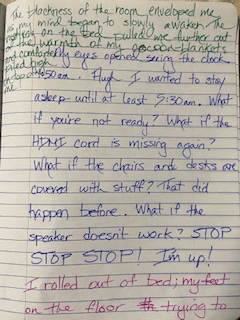 The blackness of the room enveloped me
as my mind began to slowly awaken. The
on the bed pulled me further out
of the warmth of my blankets
and comfort. My eyes opened seeing the clock
piled high
:50am. Hugh I wanted to stay
asleep until at least 5:30am. What
if you're not ready? What if the
HDMI cord is missing again?
What if the chairs and desks are
covered with stuff? That did
happen before. What if the
speaker doesn't work? STOP
STOP STOP! I'm up!
I rolled out of bed; my feet
on the floor trying to